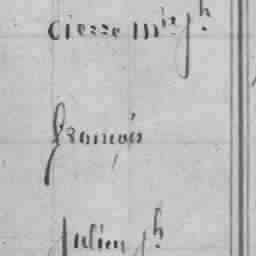 Cierre M.ie J.h
François
Julien J.h